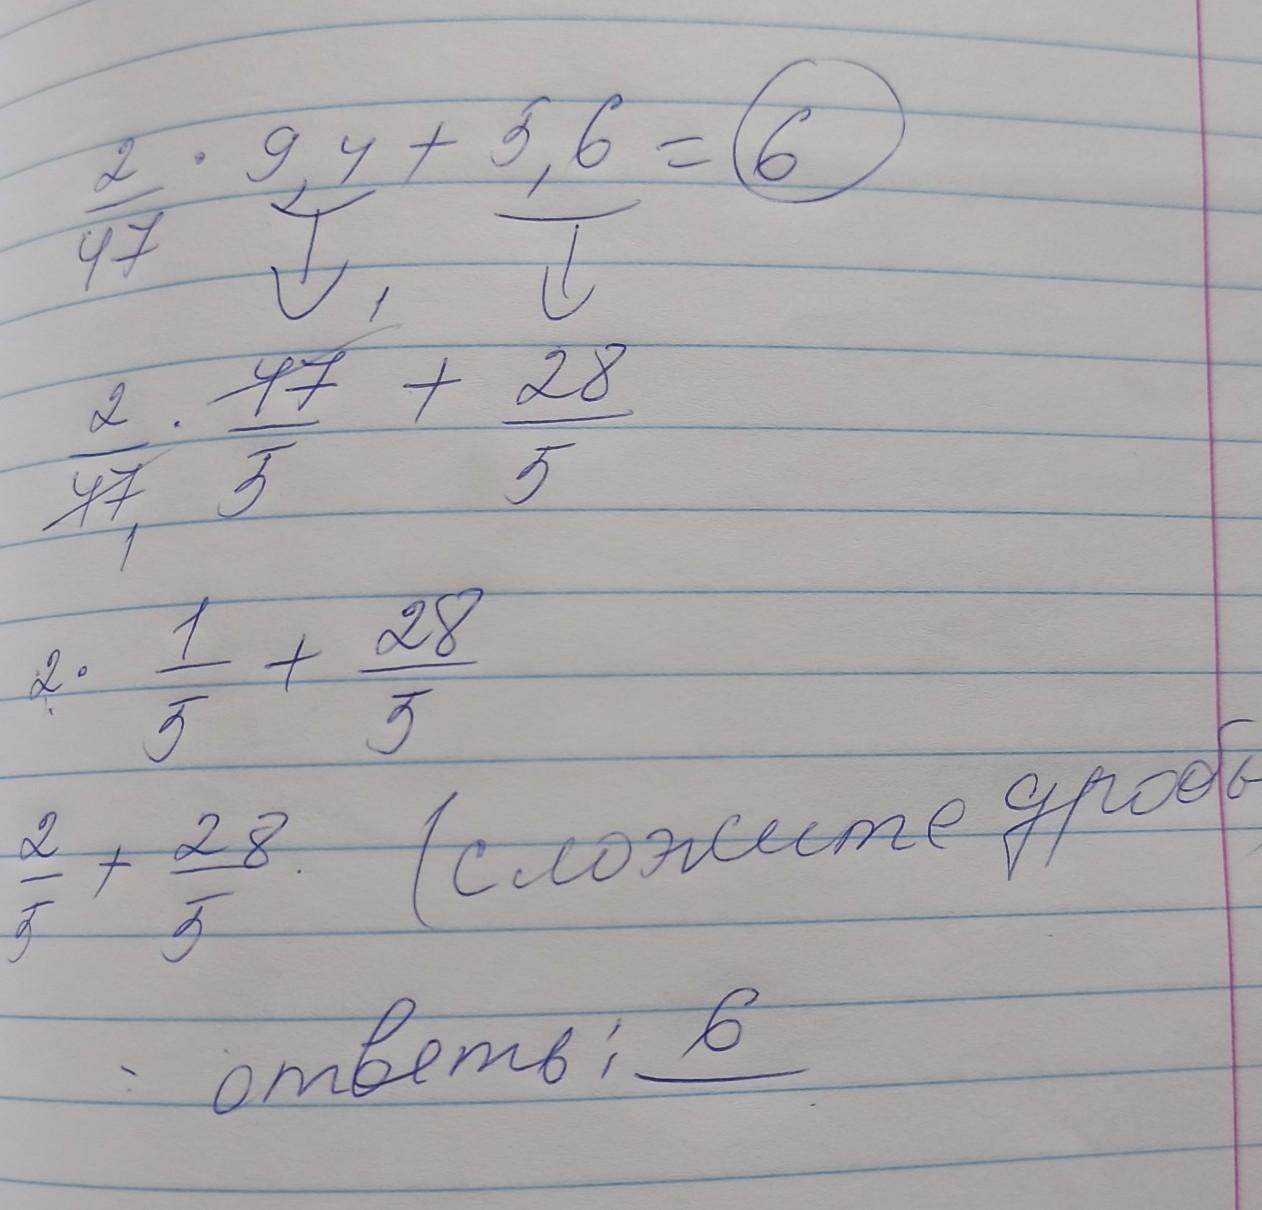 2/47 · 9,4 + 5,6 = 6
2/47 · 47/5 + 28/5
1 1
2 · 1/5 + 28/5
2/5 + 28/5. (сложите дробь
ответь: 6